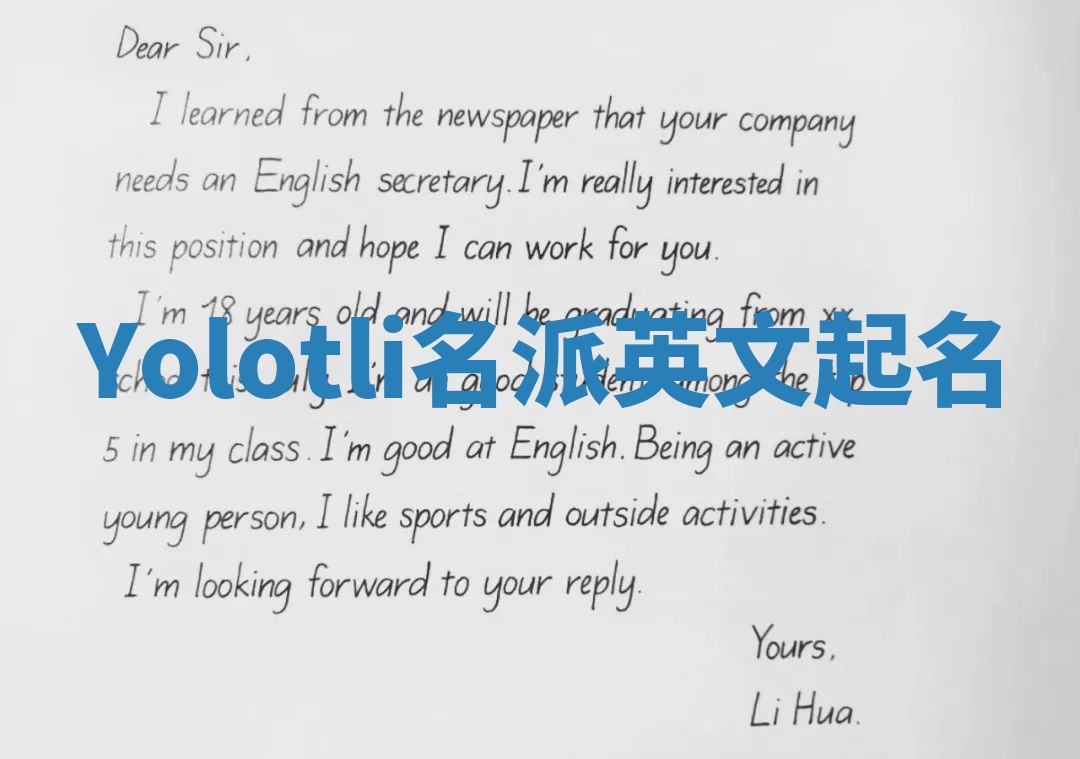 Dear Sir,
I learned from the newspaper that your company
needs an English secretary. I'm really interested in
this position and hope I can work for you.
I'm 18 years old and will be graduating from xx
Yolotli名派英文起名
school this July. I'm a good student among the top
5 in my class. I'm good at English. Being an active
young person, I like sports and outside activities.
I'm looking forward to your reply.
Yours,
Li Hua.